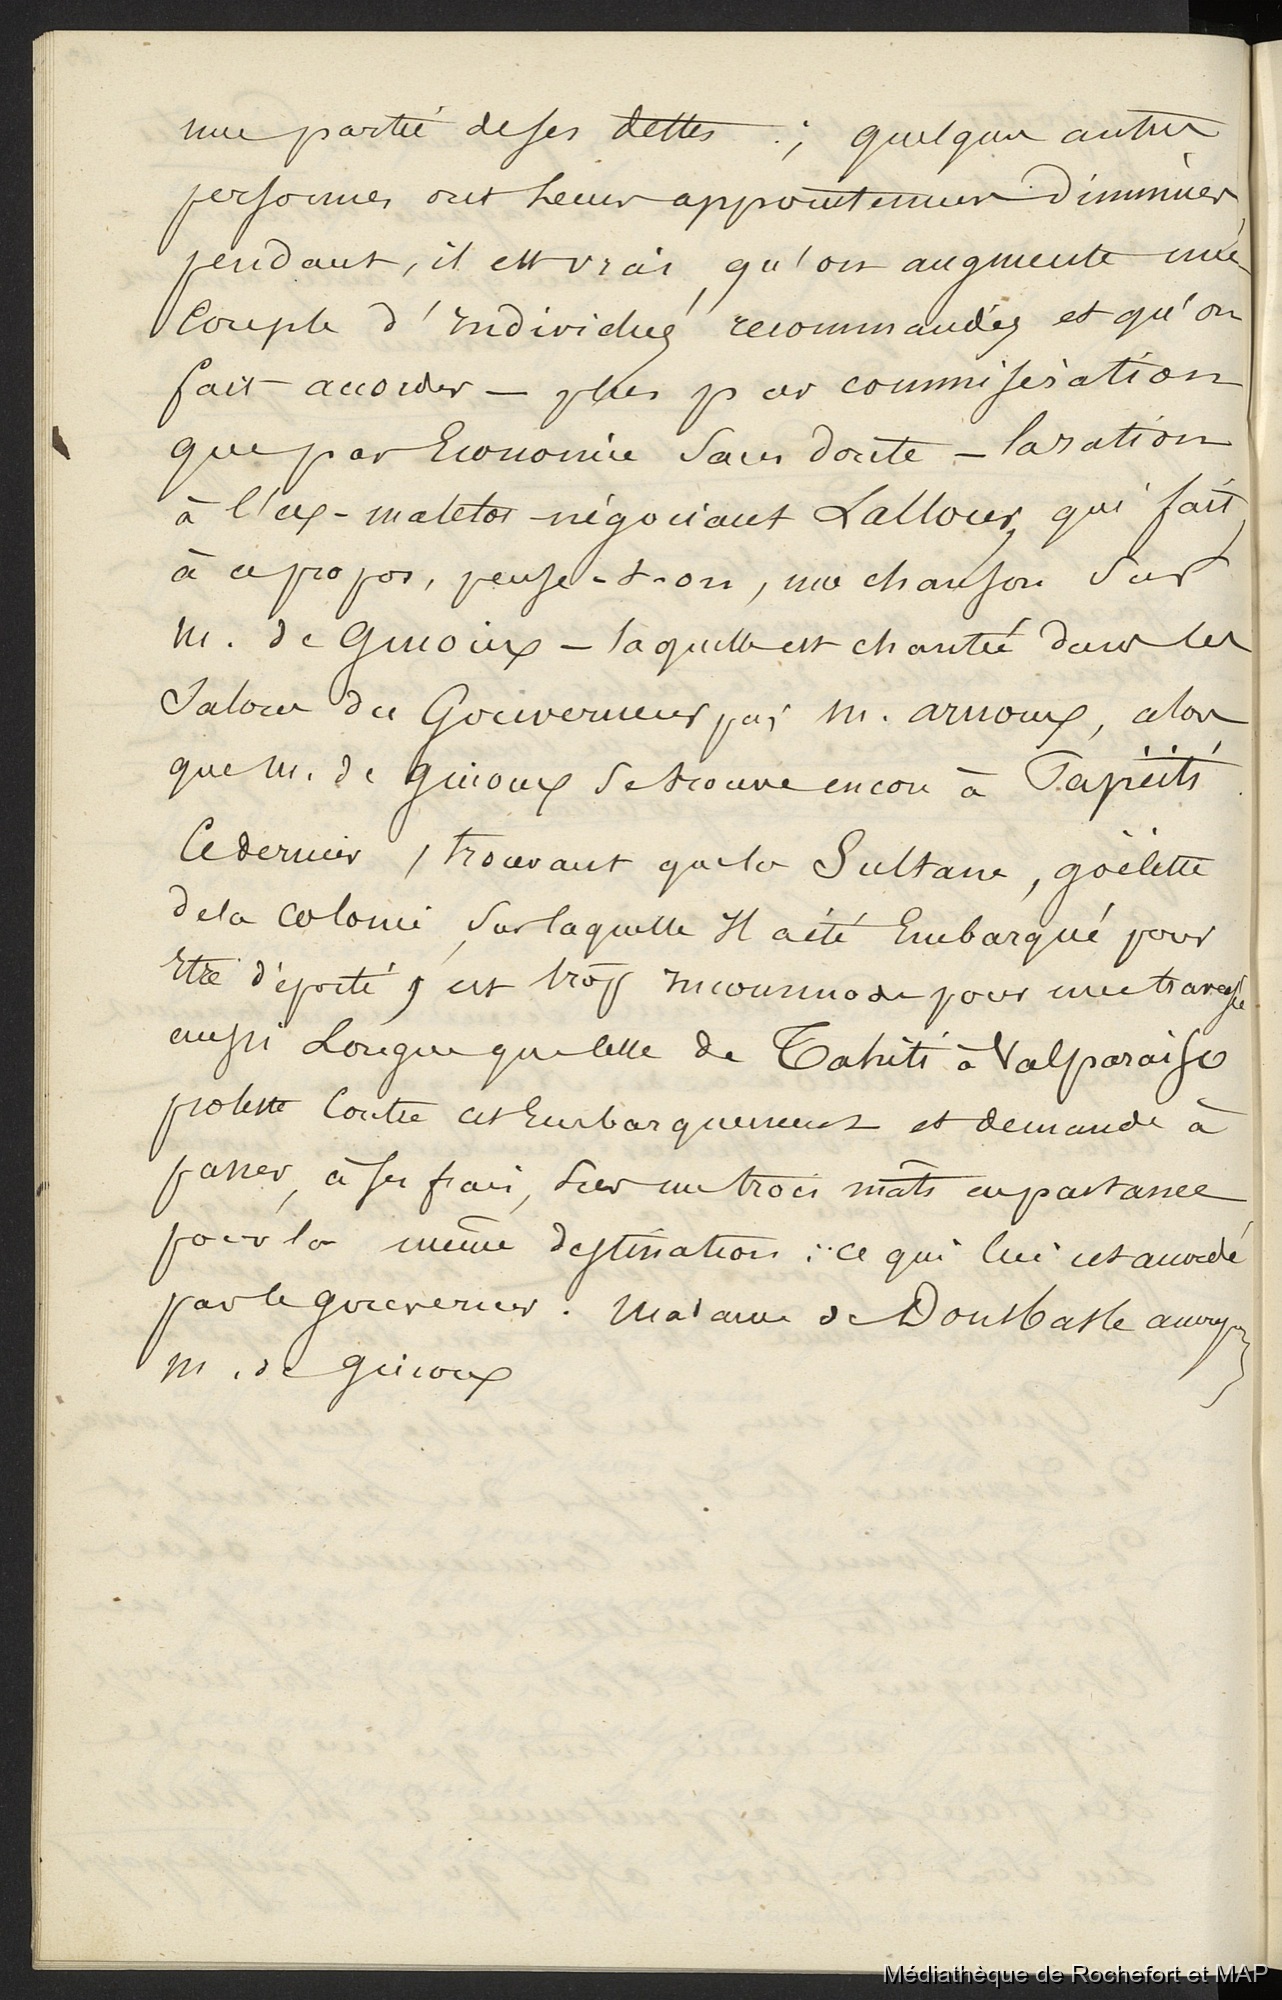 une partie de ses dettes ; quelques autres
personnes ont leurs appointemens diminués,
pendant, il est vrai, qu'on augmente une
couple d'individus recommandés et qu'on
fait accorder — plus par commisération
que par Economie sans doute — la ration
à l'ex-matelot-négociant Lallour, qui fait,
à ce propos, pense-t-on, une chanson sur
M. de Ginoux — laquelle est chantée dans les
Salons du Gouverneur par M. Arnoux, alors
que M. de Ginoux se trouve encore à Papéïti.
Ce dernier, trouvant que la Sultane, goëlette
de la colonie, sur laquelle Il a été Embarqué pour
être déporté, est trop incommode pour une traversée
aussi Longue que celle de Tahiti à Valparaiso
proteste contre cet Embarquement et demande à
passer, à ses frais, sur un trois mâts en partance
pour la même destination : ce qui lui est accordé
par le gouverneur. Madame de Dombasle accompagne
M. de Ginoux
Médiathèque de Rochefort et MAP